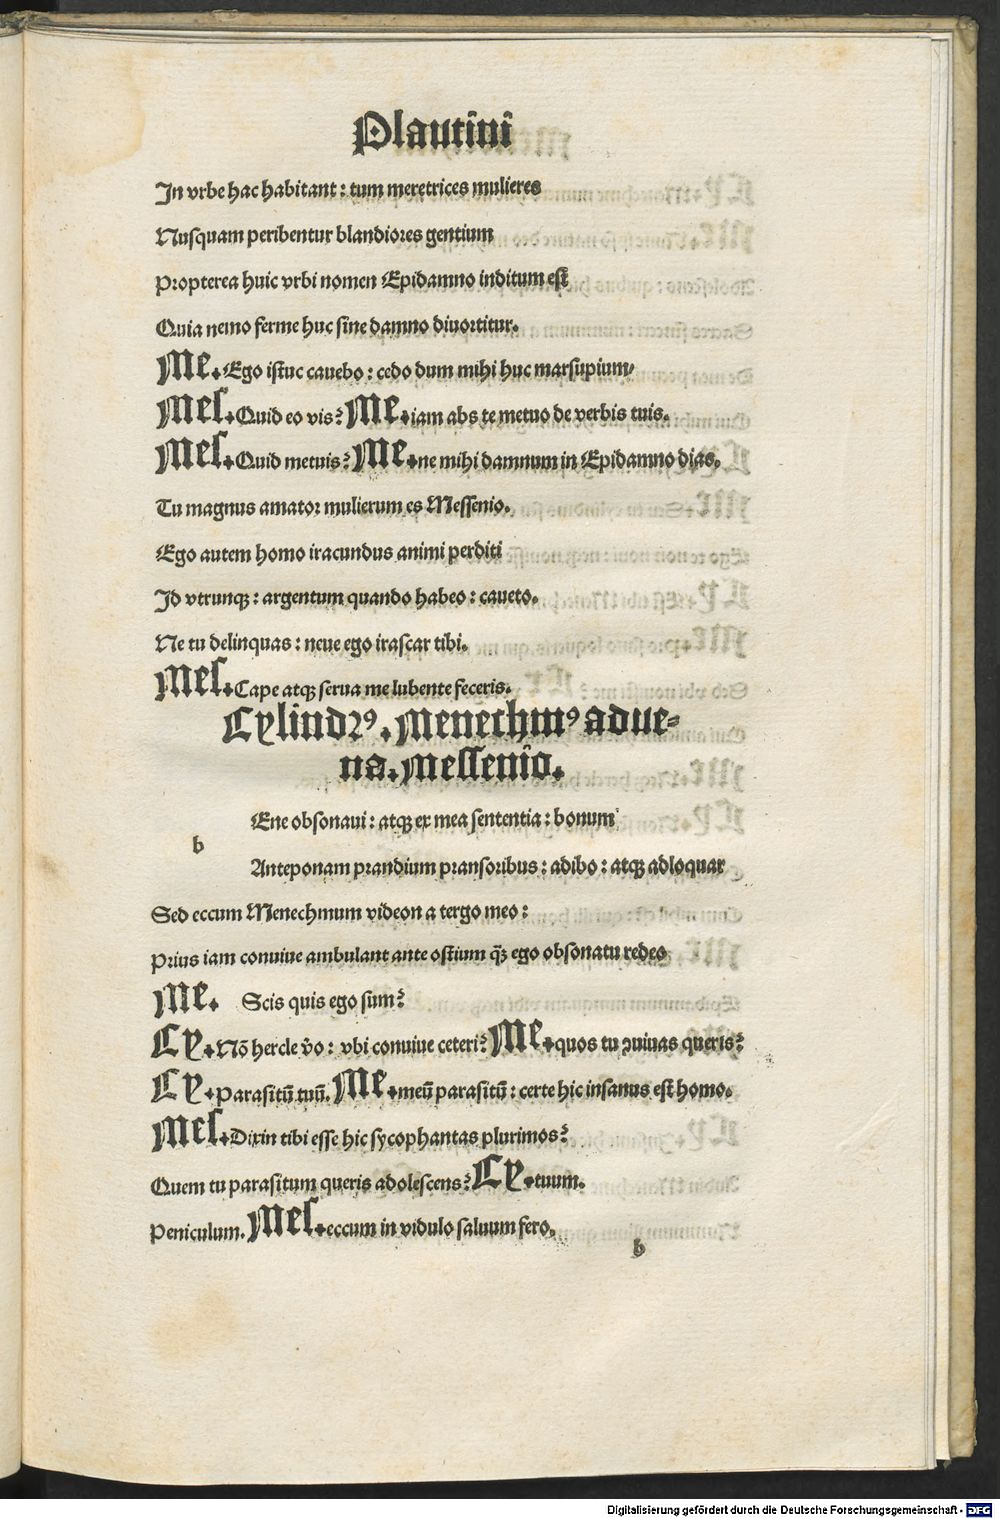 Plautini
In vrbe hac habitant : tum meretrices mulieres
Nusquam peribentur blandiores gentium
Propterea huic vrbi nomen Epidamno inditum est
Quia nemo ferme huc sine damno diuortitur.
Me. Ego istuc cauebo : cedo dum mihi huc marsupium/
Mes. Quid eo vis? Me. iam abs te metuo de verbis tuis.
Mes. Quid metuis? Me. ne mihi damnum in Epidamno dias.
Tu magnus amator mulierum es Messenio.
Ego autem homo iracundus animi perditi
Id vtrunqꝫ : argentum quando habeo : caueto.
Ne tu delinquas : neue ego irascar tibi.
Mes. Cape atqꝫ serua me lubente feceris.
Cylindrꝰ. Menechmꝰ adue⸗
na. Messenio.
Ene obsonaui : atqꝫ ex mea sententia : bonum
b
Anteponam prandium pransoribus : adibo : atqꝫ adloquar
Sed eccum Menechmum videon a tergo meo :
Prius iam conuiue ambulant ante ostium qꝫ̃ ego obsonatu redeo
Me. Scis quis ego sum?
Cy. Nō hercle v̄o : vbi conuiue ceteri? Me. quos tu ꝯuiuas queris?
Cy. Parasitū tuū. Me. meū parasitū : certe hic insanus est homo.
Mes. Dixin tibi esse hic sycophantas plurimos?
Quem tu parasitum queris adolescens? Cy. tuum.
Peniculum. Mes. eccum in vidulo saluum fero.
b
Digitalisierung gefördert durch die Deutsche Forschungsgemeinschaft - DFG